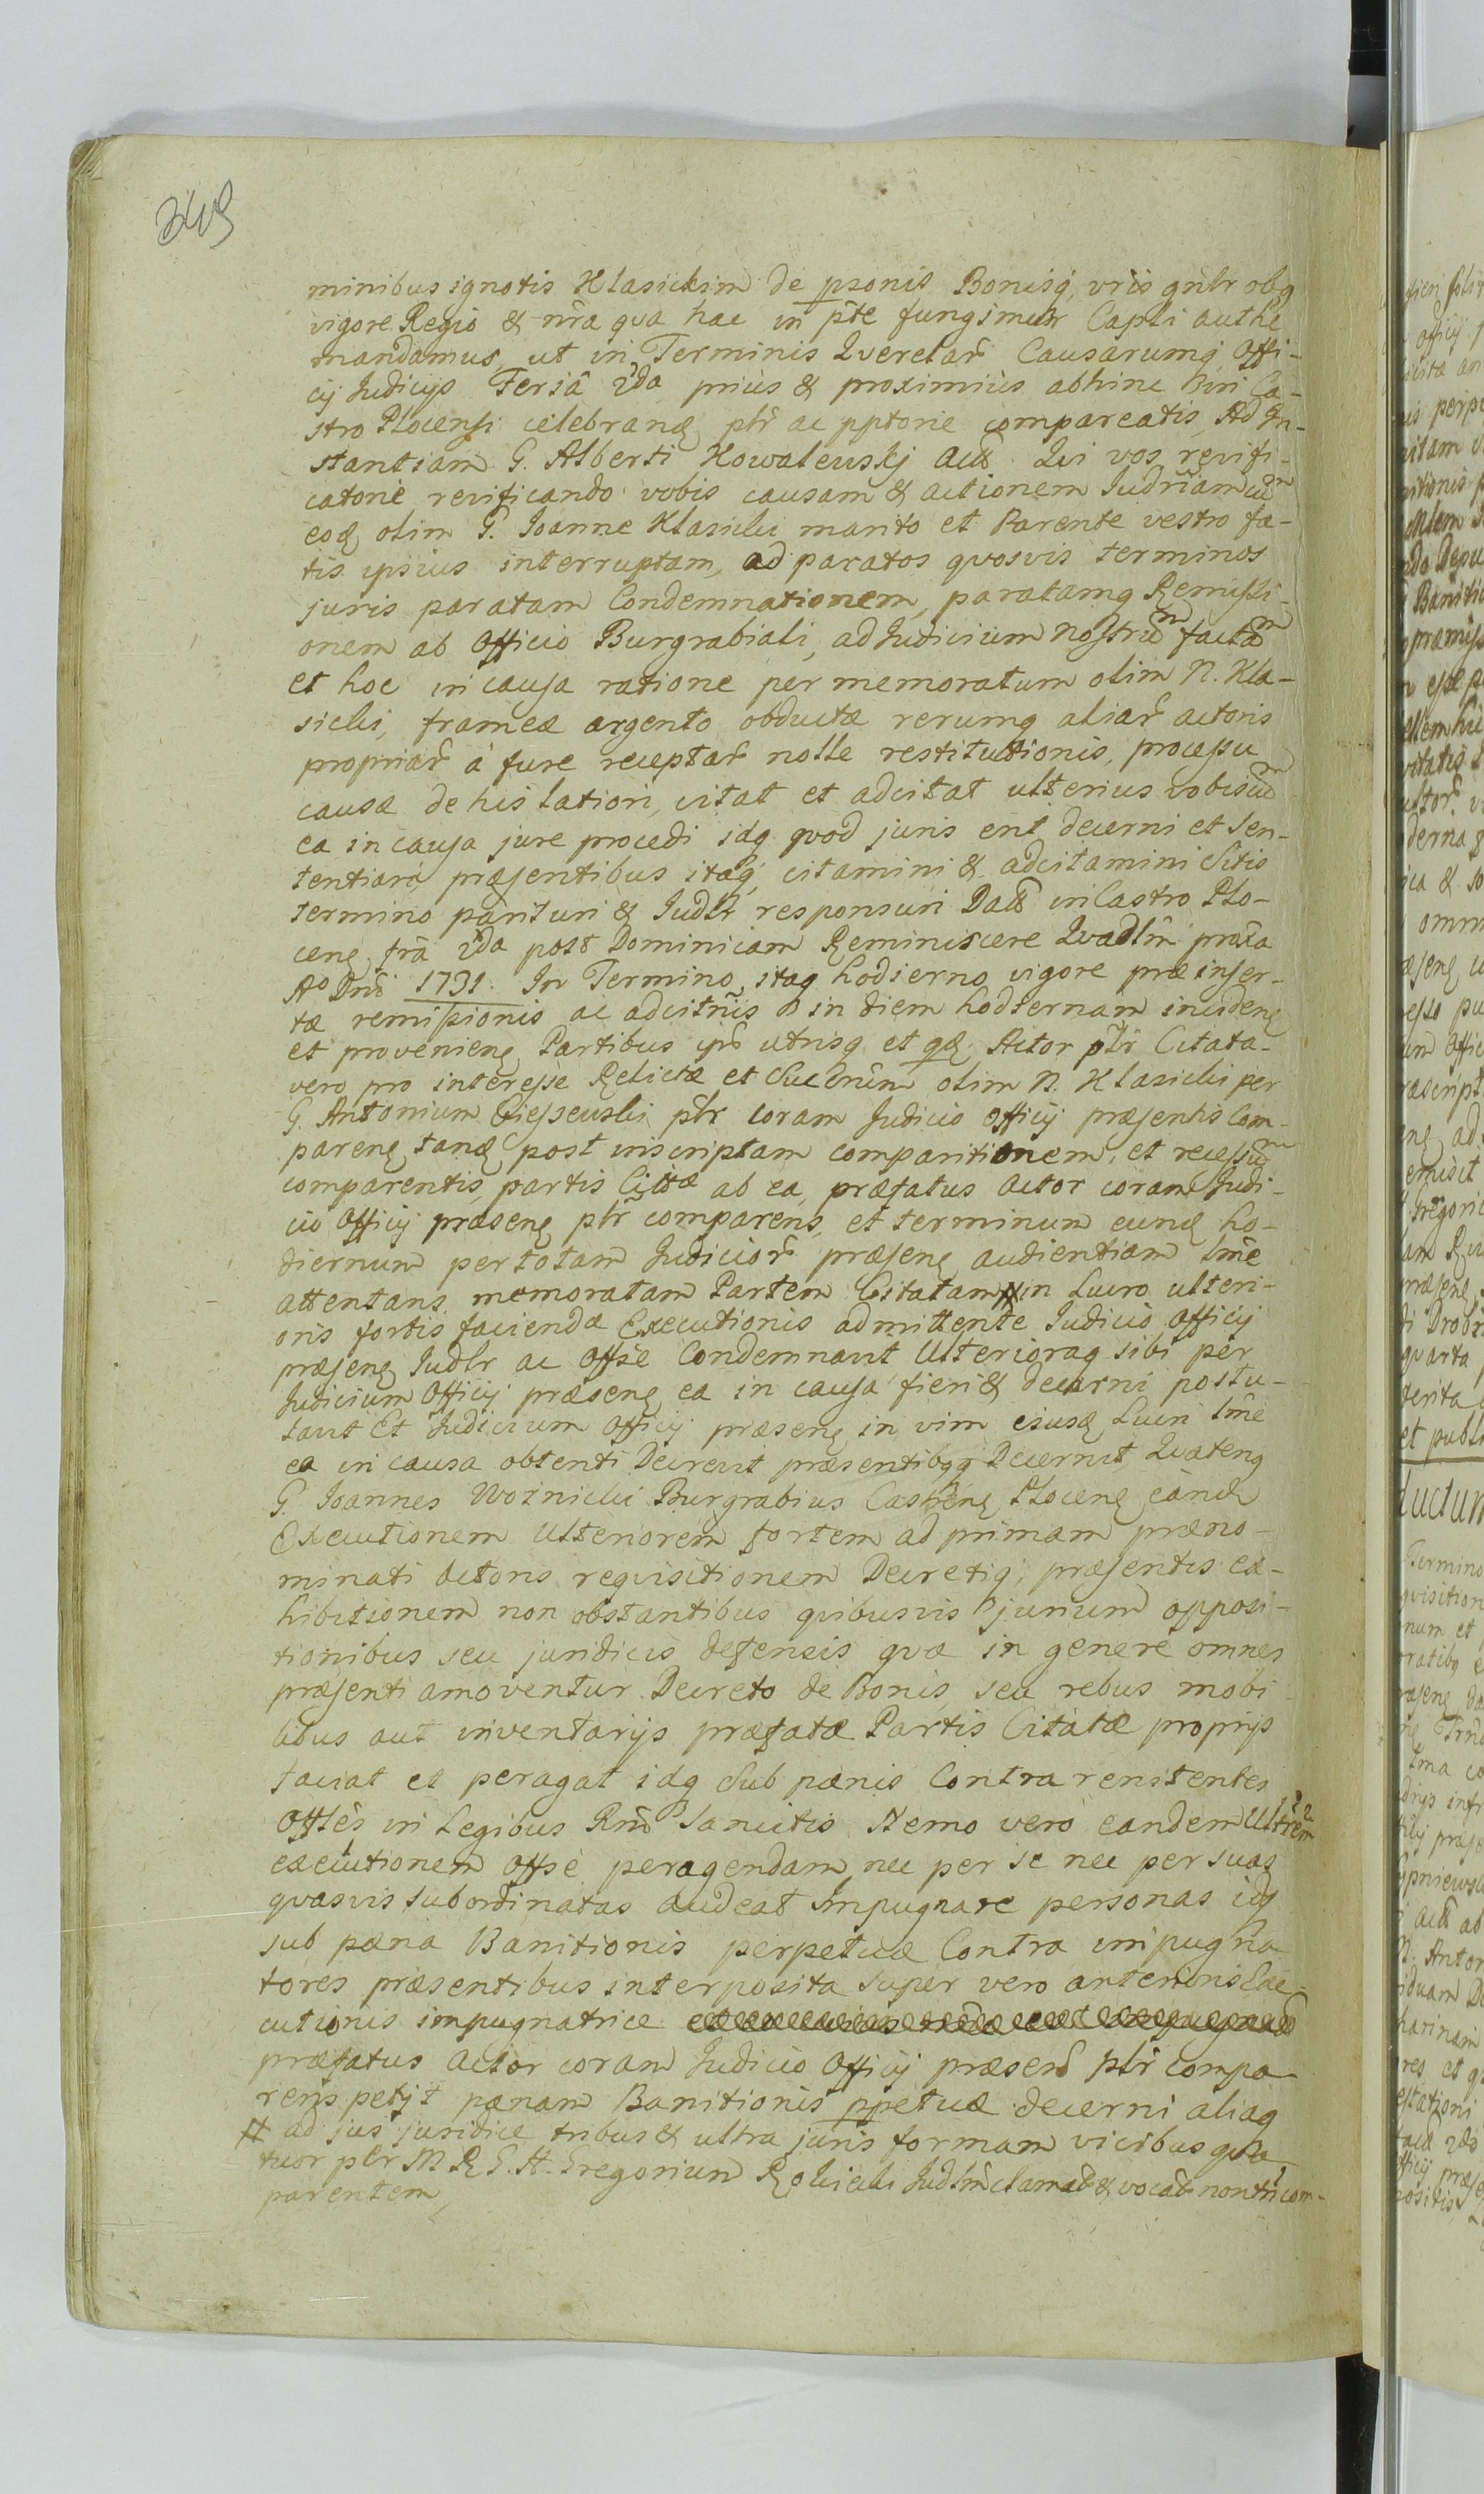 349
minibus ignotis Klasickim de psonis Bonisq, vris gnlr obq
vigore Regio & nra qua hac in pte fungimur Capli authe
mandamus, ut in Terminis Querelar Causarumq, Offi-
cij Judicijs Feria 2da prius & proximius abhinc in Ca-
stro Plocensi celebrand, plr ac pptorie compareatis, Ad In-
stantiam G. Alberti Kowalewskj Act. Qui vos revifi-
catorie revificando vobis causam & actionem Judriam cum
eod, olim G. Joanne Klasicki marito et Parente vestro fa-
tis ipsius interruptam, ad paratos quosvis terminos
juris paratam Condemnationem, paratamq Remissi-
onem ab Officio Burgrabiali, ad Judicium nostrum factam
et hoc in causa ratione per memoratum olim N. Kla-
sicki, frameæ argento obductæ rerumq aliar actoris
propriar à fure receptar nolle restitutionis, processu
causæ de his latiori, citat et adcitat ulterius vobiscum
ea in causa jure procedi idq quod juris erit decerni et Sen-
tentiari, præsentibus itaq, citamini & adcitamini Sitis
termino parituri & Judlr responsuri Datt in Castro Plo-
cen, fria 2da post Dominicam Reminiscere Quadlm proxa
Ao Dni 1731. In Termino itaq hodierno vigore præinser-
tæ remissionis ac adcitnis in diem hodiernam inciden
et provenien, Partibus ipis utrisq et qd, Actor plr Citata
vero pro interesse Relictæ et Succrum olim N. Klasicki per
G. Antonium Ciessewski plr coram Judicio Officij præsentis Com-
paren, tand, post inscriptam comparitionem, et recessum
comparentis, partis Cittæ ab ea, præfatus Actor coram Judi-
cio Officij præsen, plr comparens, et terminum eund, ho-
diernum per totam Judicior præsen, audientiam lme
attentans, memoratam Partem Citatam # in Lucro ulteri-
oris fortis faciendæ Executionis admittente Judicio Officij
præsen, Judlr ac Offse Condemnavit Ulterioraq sibi per
Judicium Officij præsen, ea in causa fieri & decerni postu-
lavit Et Judicium Officij præsen, in vim eiusd, Lucri lme
ea in causa obtenti Decrevit præsentibqq Decernit Quaten,
G. Joannes Woznicki Burgrabius Castren, Plocen, eand
Executionem Ulteriorem fortem ad primam præno-
minati Actoris requisitionem Decretiq, præsentis ex-
hibitionem non obstantibus quibusvis jurium opposi-
tionibus seu juridicis defensis quæ in genere omnes
præsenti amoventur Decreto de Bonis, seu rebus mobi-
libus aut inventarijs præfatæ Partis Citatæ proprijs
faciat et peragat idq Sub pænis Contra renitentes
Offles in Legibus Rni Sancitis Nemo vero eandem Ultrem
executionem offse peragendam, nec per se nec per suas
quasvis subordinatas audeat Impugnare personas idq
sub pæna Banitionis perpetuæ Contra impugna
tores præsentibus interposita super vero anterioris Exe-
cutionis impugnatrice
præfatus Actor coram Judicio Officij præsen plr compa-
rens petijt pænam Banitionis ppetuæ decerni aliaq
# ad jus juridice tribus & ultra juris formam vicibus qua-
tuor plr M R G. A. Gregorium Rokicki Judlm clamat & vocat non tn com-
parentem